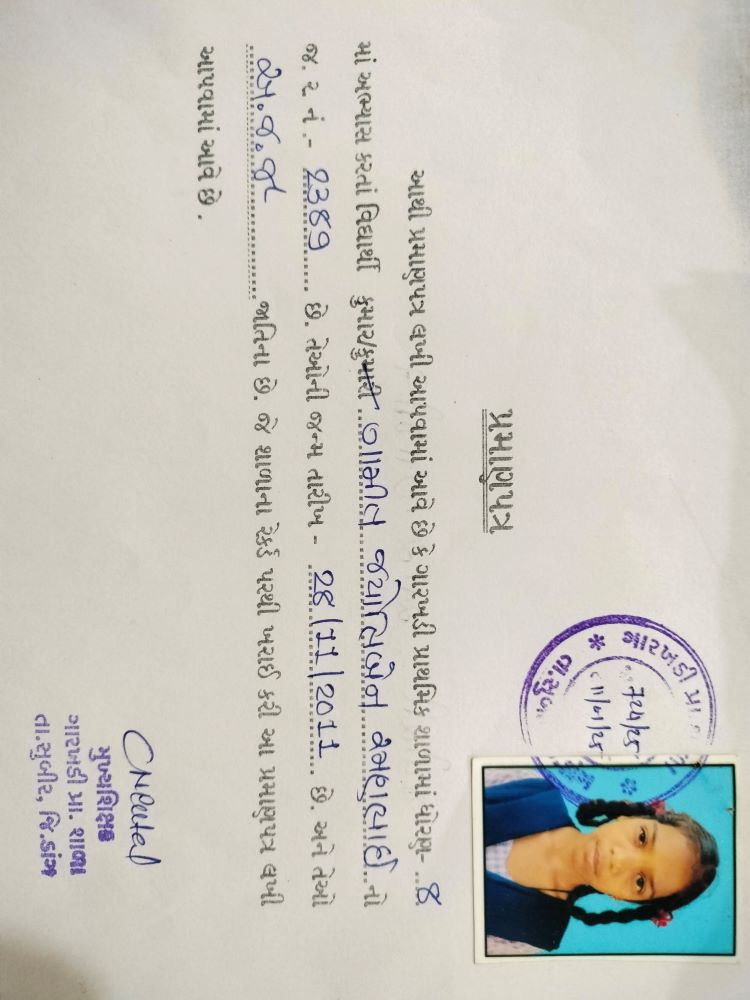 પ્રમાણપત્ર
આથી પ્રમાણપત્ર લખી આપવામાં આવે છે કે ગારખડી પ્રાથમિક શાળામાં ધોરણ-...૪.
માં અભ્યાસ કરતાં વિદ્યાર્થી કુમાર/કુમારી...ગામીત જયોત્સિબેન રમણભાઈ...નો
જ. ર. નં. - 2389 છે. તેઓની જન્મ તારીખ - 28/11/2011 છે. અને તેઓ
..........અ.જ.જ..........જાતિના છે. જે શાળાના રેકર્ડ પરથી ખરાઈ કરી આ પ્રમાણપત્ર લખી
આપવામાં આવે છે.
મુખ્યશિક્ષક
ગારખડી પ્રા. શાળા
તા.સુબીર, જિ.ડાંગ